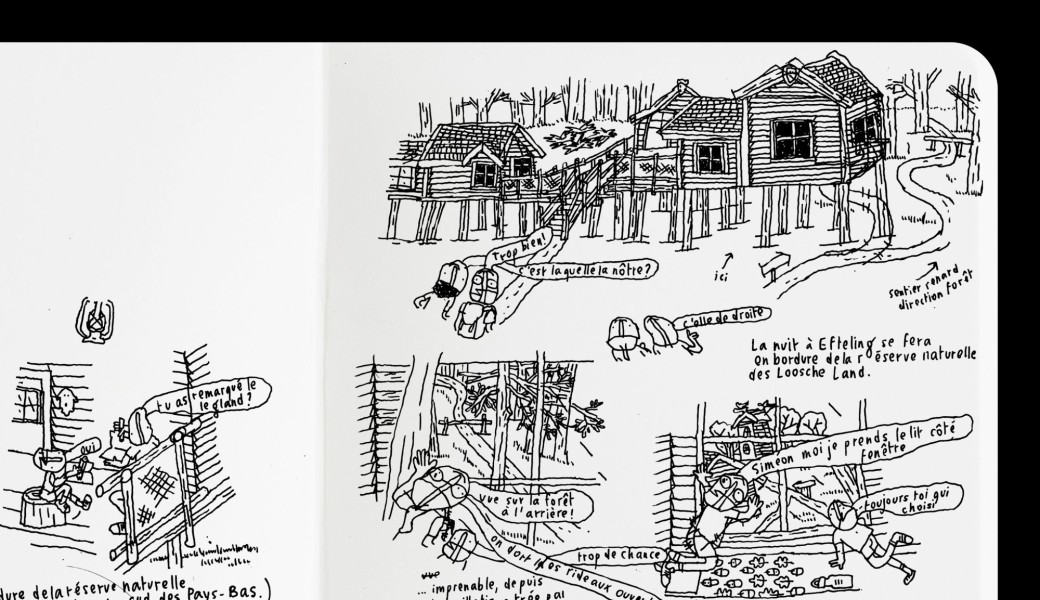 tu as remarqué le
le gland ?
oui
dure de la réserve naturelle
sud des Pays-Bas.)
Trop bien!
c'est laquelle la nôtre ?
ici
sentier renard
direction forêt
c'elle de droite
La nuit à Efteling se fera
en bordure de la réserve naturelle
des Loosche Land.
vue sur la forêt
à l'arrière!
Simeon moi je prends le lit côté
fenêtre
toujours toi qui
choisi
on dort les rideaux ouverts
trop de chance
... imprenable, depuis